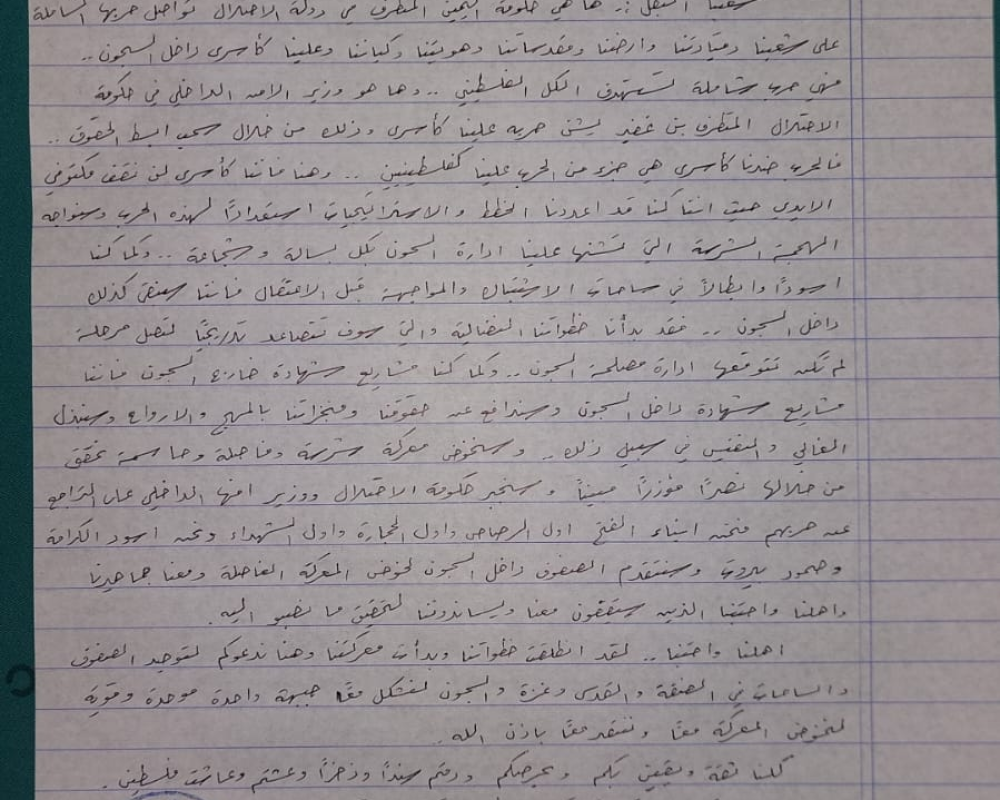 شعبنا البطل .. ها هي حكومة اليمين المتطرف في دولة الاحتلال تواصل حربها الشاملة
على شعبنا وقيادتنا وارضنا ومقدساتنا وهويتنا وكياننا وعلينا كأسرى داخل السجون ..
فهي حرب شاملة تستهدف الكل الفلسطيني .. وها هو وزير الامن الداخلي في حكومة
الاحتلال المتطرف بن غفير يشن حربه علينا كأسرى وذلك من خلال سحب ابسط الحقوق ..
فالحرب ضدنا كأسرى هي جزء من الحرب علينا كفلسطينيين .. وهنا فاننا كأسرى لن نقف مكتوفي
الايدي حيث اننا كنا قد اعددنا الخطط والاستراتيجيات استعداداً لهذه الحرب وسنواجه
الهجمة الشرسة التي تشنها علينا ادارة السجون بكل بسالة وشجاعة .. وكما كنا
اسوداً وابطالاً في ساحات الاشتباك والمواجهة قبل الاعتقال فاننا سنبقى كذلك
داخل السجون .. فقد بدأنا خطواتنا النضالية والتي سوف تتصاعد تدريجياً لتصل مرحلة
لم تكن تتوقعها ادارة مصلحة السجون .. وكما كنا مشاريع شهادة خارج السجون فاننا
مشاريع شهادة داخل السجون وسندافع عن حقوقنا ومنجزاتنا بالمهج والارواح وسنبذل
الغالي والنفيس في سبيل ذلك .. وسنخوض معركة شرسة وفاصلة وحاسمة نحقق
من خلالها نصراً مؤزراً مبيناً وسنجبر حكومة الاحتلال ووزير امنها الداخلي على التراجع
عن حربهم فنحن ابناء الفتح اول الرصاص واول الحجارة واول الشهداء ونحن اسود الكرامة
وصمود بيروت وسنتقدم الصفوف داخل السجون لخوض المعركة الفاصلة ومعنا جماهيرنا
واهلنا واحبتنا الذين سيقفون معنا ويساندوننا لتحقيق ما نصبو اليه .
اهلنا واحبتنا .. لقد انطلقت خطواتنا وبدأت معركتنا وهنا ندعوكم لتوحيد الصفوف
والساحات في الضفة والقدس وغزة والسجون لنشكل معاً جبهة واحدة موحدة وقوية
لنخوض المعركة معاً وننتصر معاً باذن الله .
كلنا ثقة ويقين بكم وبحرصكم ودمتم سنداً وذخراً وعشتم وعاشت فلسطين .